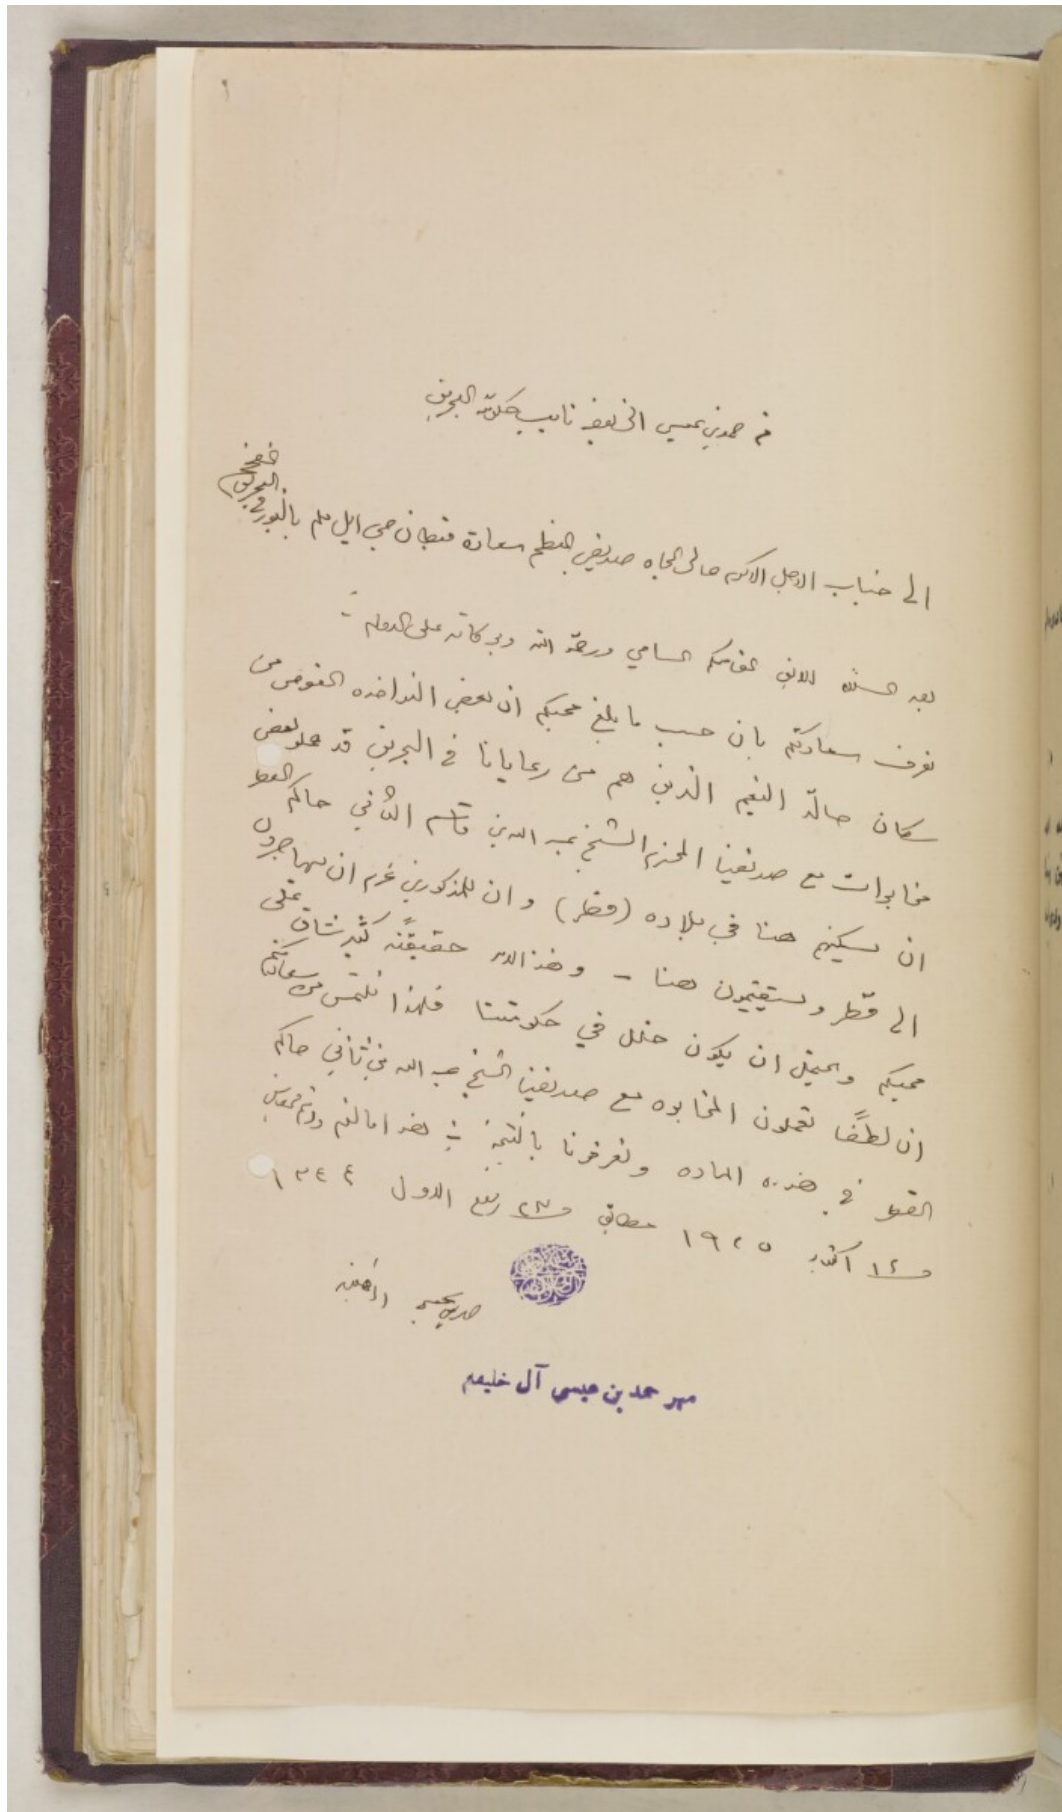 من حمد بن عيسى الخليفه نايب حكومة البحرين
الى جناب الاجل الاكرم عالى الجاه صديقي المعظم سعادة قبطان جي ايل ملم باليوز في البحرين
بعد السلام اللايق بمقامكم السامي ورحمة الله وبركاته على الدوام
نعرف سعادتكم بان حسب ما بلغ محبكم ان بعض النواخذه الغوص من
سكان حالة النعيم الذين هم من رعايانا في البحرين قد عملو بعض
مخابرات مع صديقينا المحترم الشيخ عبد الله بن قاسم الثاني حاكم القطر
ان يسكنهم هنا في بلاده (قطر) وان للمذكورين عزم ان يهاجرون
الى قطر ويستقيمون هنا - وهذ الامر حقيقةً كثير شاق على
محبكم ويحتمل ان يكون خلل في حكومتنا فلهذا نلتمس من سعادتكم
ان لطفًا تعملون المخابره مع صديقينا الشيخ عبد الله بن ثاني حاكم
القطر في هذه الماده وتعرفونا بالنتيجة هذا مالزم ودمتم محروسين
١٢ اكتوبر ١٩٢٥ مطابق ٢٣ ربيع الاول ١٣٤٤
مهر حمد بن عيسى آل خليفه